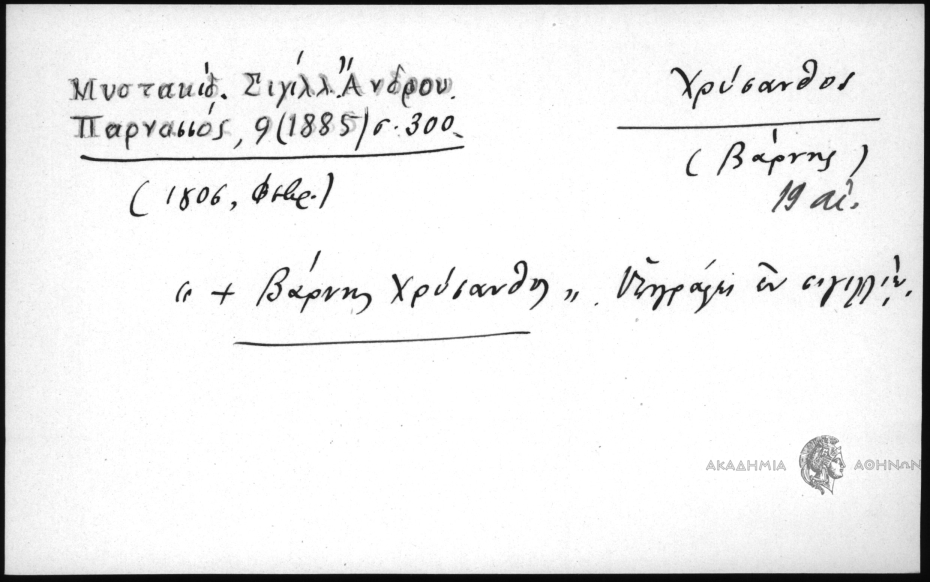 Μυστακίδ. Σιγίλλ. Ἄνδρου.
Παρνασσός, 9 (1885) σ. 300.
(1806, Φεβρ.)
Χρύσανθος
(Βάρνης)
19 αἰ.
“ + Βάρνης Χρύσανθος ”. Ὑπογράφει ἐν σιγιλλίῳ.
ΑΚΑΔΗΜΙΑ ΑΘΗΝΩΝ